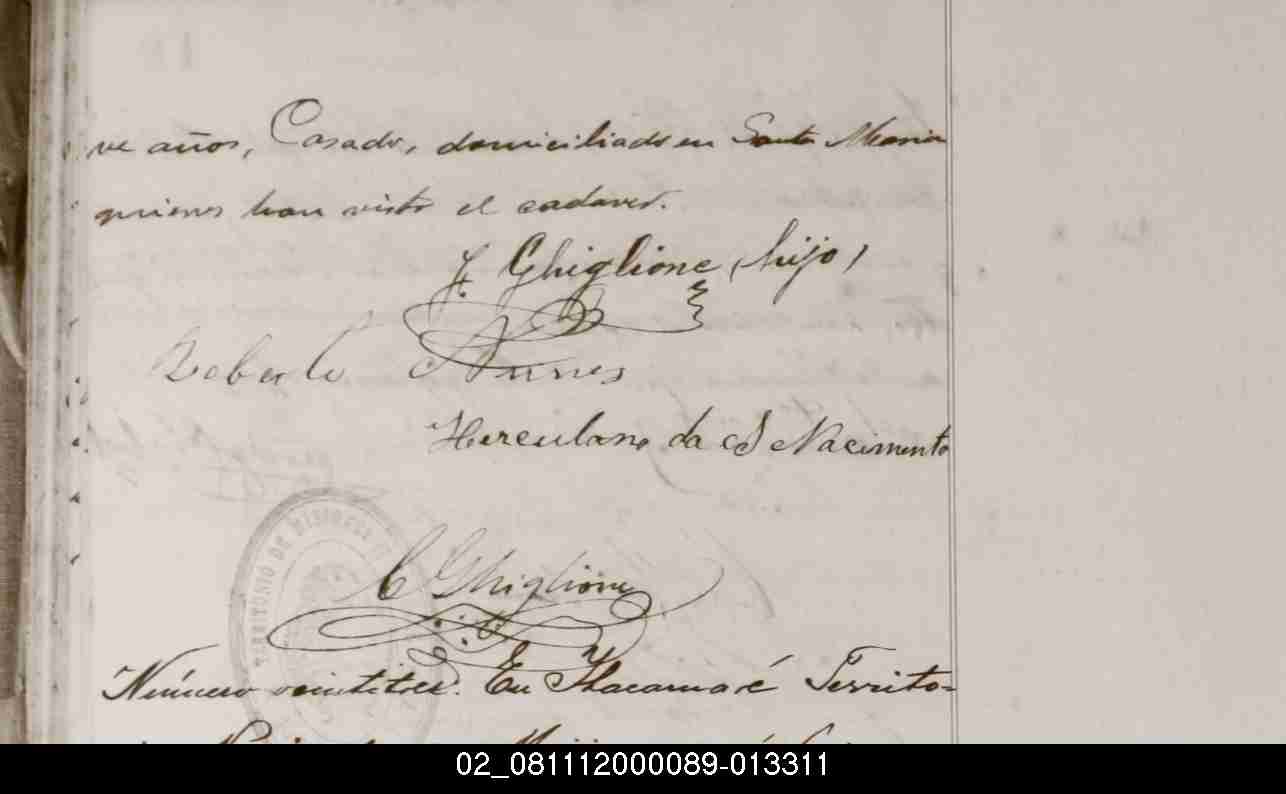 ve años, Casado, domiciliado en Santa Maria
quienes han visto el cadaver.
F. Ghiglione (hijo)
Nunes
Herculano da S Nacimento
TERRITORIO DE MISIONES
C Ghiglione
Número veintitres. En Itacaruaré Territo-
02_081112000089-013311